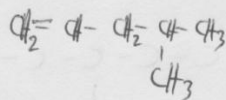 CH₂= CH- CH₂- CH- CH₃
CH₃